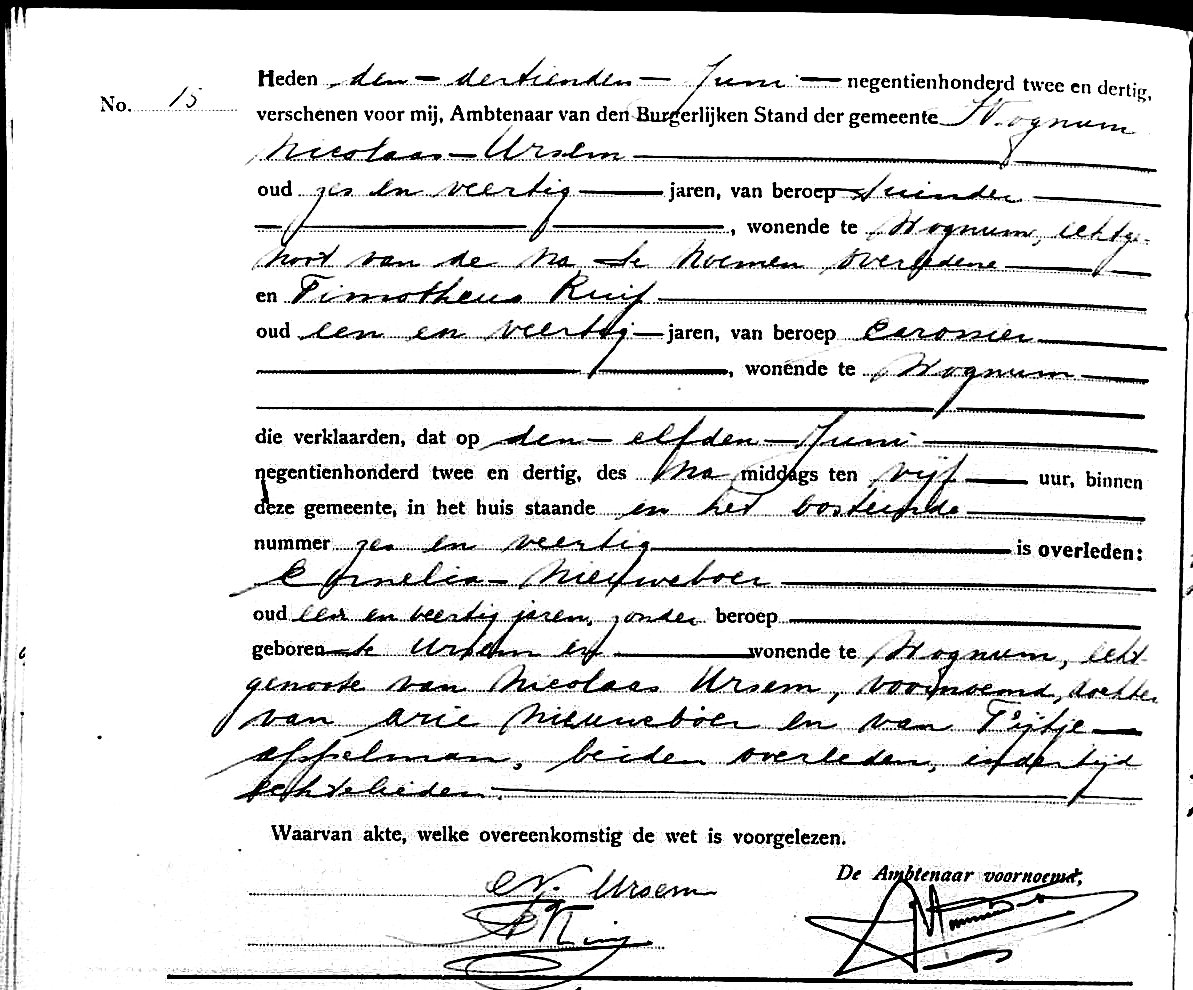 Heden den dertienden Juni negentienhonderd twee en dertig,
No. 15
verschenen voor mij, Ambtenaar van den Burgerlijken Stand der gemeente Wognum
Nicolaas Ursem
oud zes en veertig jaren, van beroep tuinder
, wonende te Wognum, echtge-
noot van de na te noemen overledene
en Timotheus Ruijf
oud een en veertig jaren, van beroep
, wonende te Wognum
die verklaarden, dat op den elfden Juni
negentienhonderd twee en dertig, des na middags ten vijf uur, binnen
deze gemeente, in het huis staande en het oosteinde
nummer zes en veertig is overleden:
Cornelia Nieuweboer
oud een en veertig jaren, zonder beroep
geboren te Ursem en wonende te Wognum, echt-
genoote van Nicolaas Ursem, voornoemd, dochter
van Arie Nieuweboer en van Trijtje
Appelman, beiden overleden, indertijd
echtelieden.
Waarvan akte, welke overeenkomstig de wet is voorgelezen.
De Ambtenaar voornoemd,
N. Ursem